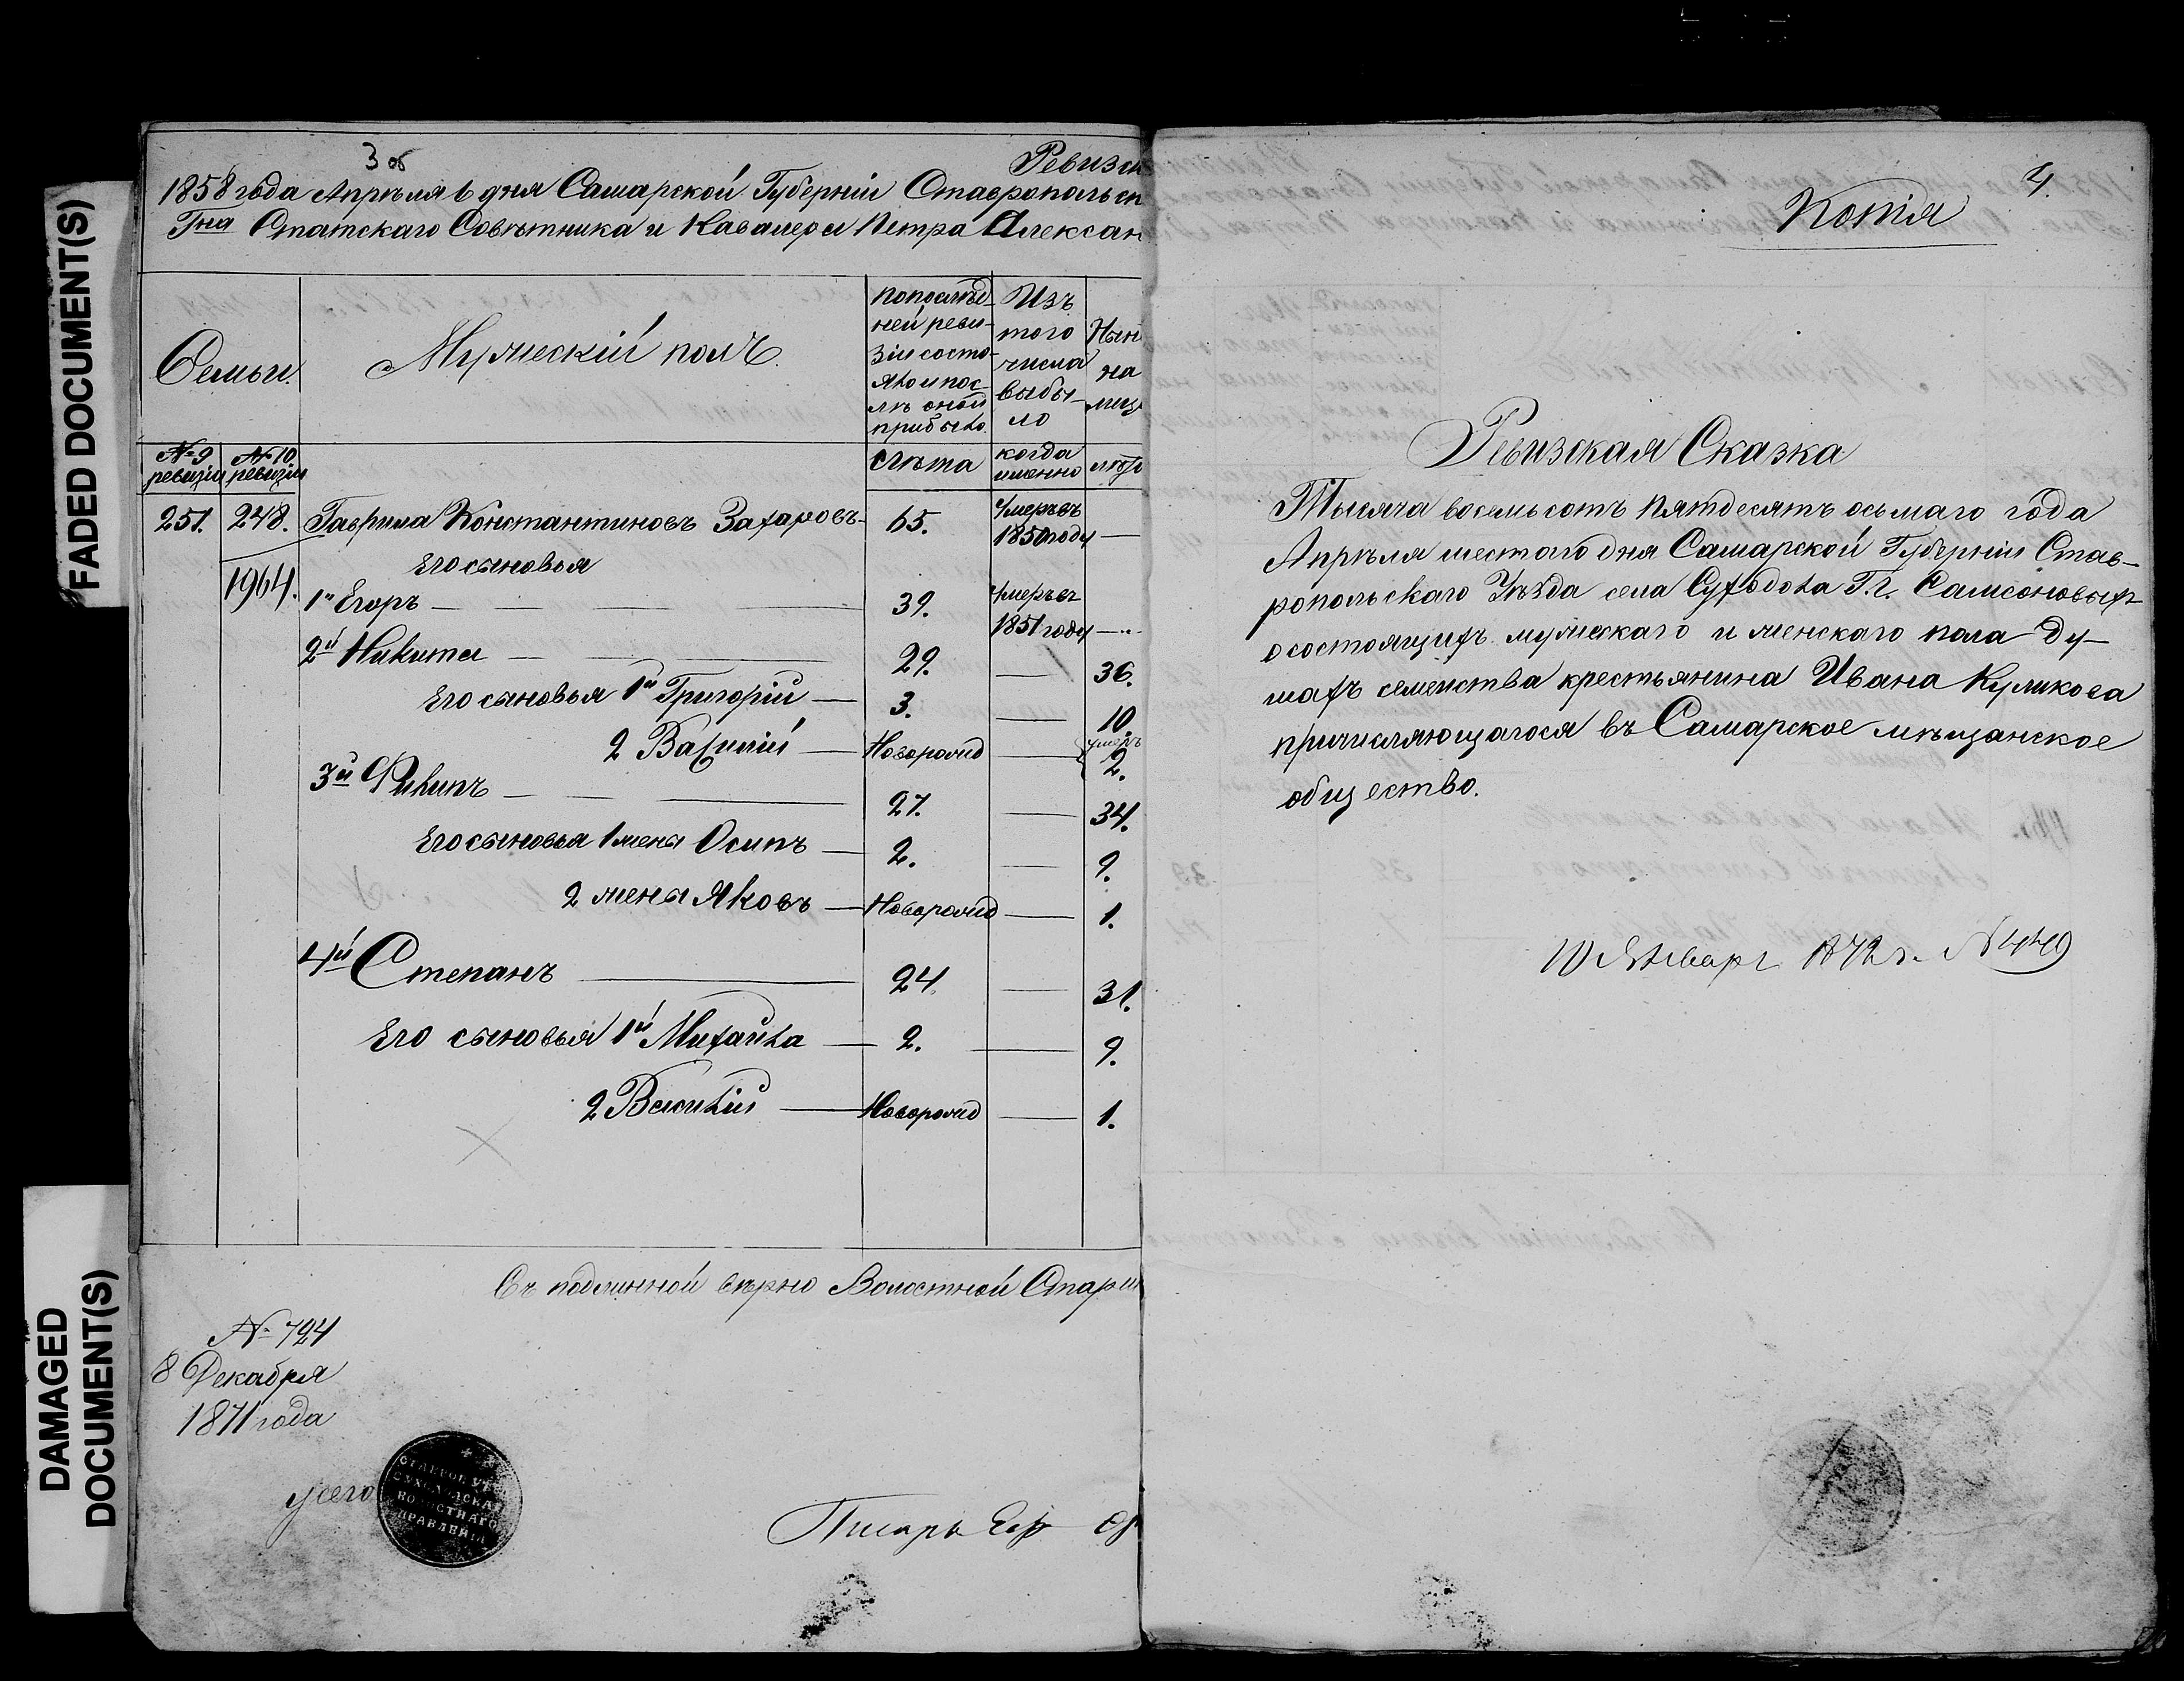 FADED DOCUMENT(S)
DAMAGED DOCUMENT(S)
3 об
Ревизск
1858 года Апрѣля 6 дня Самарской Губерніи Ставропольск
Гна Статскаго Совѣтника и Кавалера Петра Алексан
Семьи.
Мужескій полъ.
По послѣд-
ней реви-
зіи состо-
яло и пос-
лѣ оной
прибыло.
Изъ
того
числа
выбы-
ло
Нын
на
лиц
№ 9 ревизіи
№ 10 ревизіи
Лѣта
когда именно
лѣт
251. 248. Гаврила Константиновъ Захаровъ 65. Умеръ въ 1850 году —
Его сыновья
1964.
1й Егоръ — 39. Умеръ въ 1851 году —
2й Никита — 29. — 36.
Его сыновья 1й Григорій — 3. — 10.
2 Василій — Новорожд — умеръ 2.
3й Филипъ — 27. — 34.
Его сыновья 1 жены Осипъ — 2. — 9.
2 жены Яковъ — Новорожд — 1.
4й Степанъ — 24. — 31.
Его сыновья 1й Михайла — 2. — 9.
2 Василій — Новорожд — 1.
Съ подлинной вѣрно Волостной Старши
№ 724
8 Декабря
1871 года
СТАВРОП. УѢ
СУХОДОЛСКАГ
ВОЛОСТНАГО
ПРАВЛЕНІЯ
Писарь
4.
Копія
Ревизская Сказка
Тысяча восемьсотъ пятдесятъ осьмаго года
Апрѣля шестаго дня Самарской Губерніи Став-
ропольскаго Уѣзда села Суходола Г.г. Самсоновыхъ
о состоящихъ мужескаго и женскаго пола ду-
шахъ семейства крестьянина Ивана Куликова
причисляющагося въ Самарское мѣщанское
общество.
10 Январ 1872 г. №